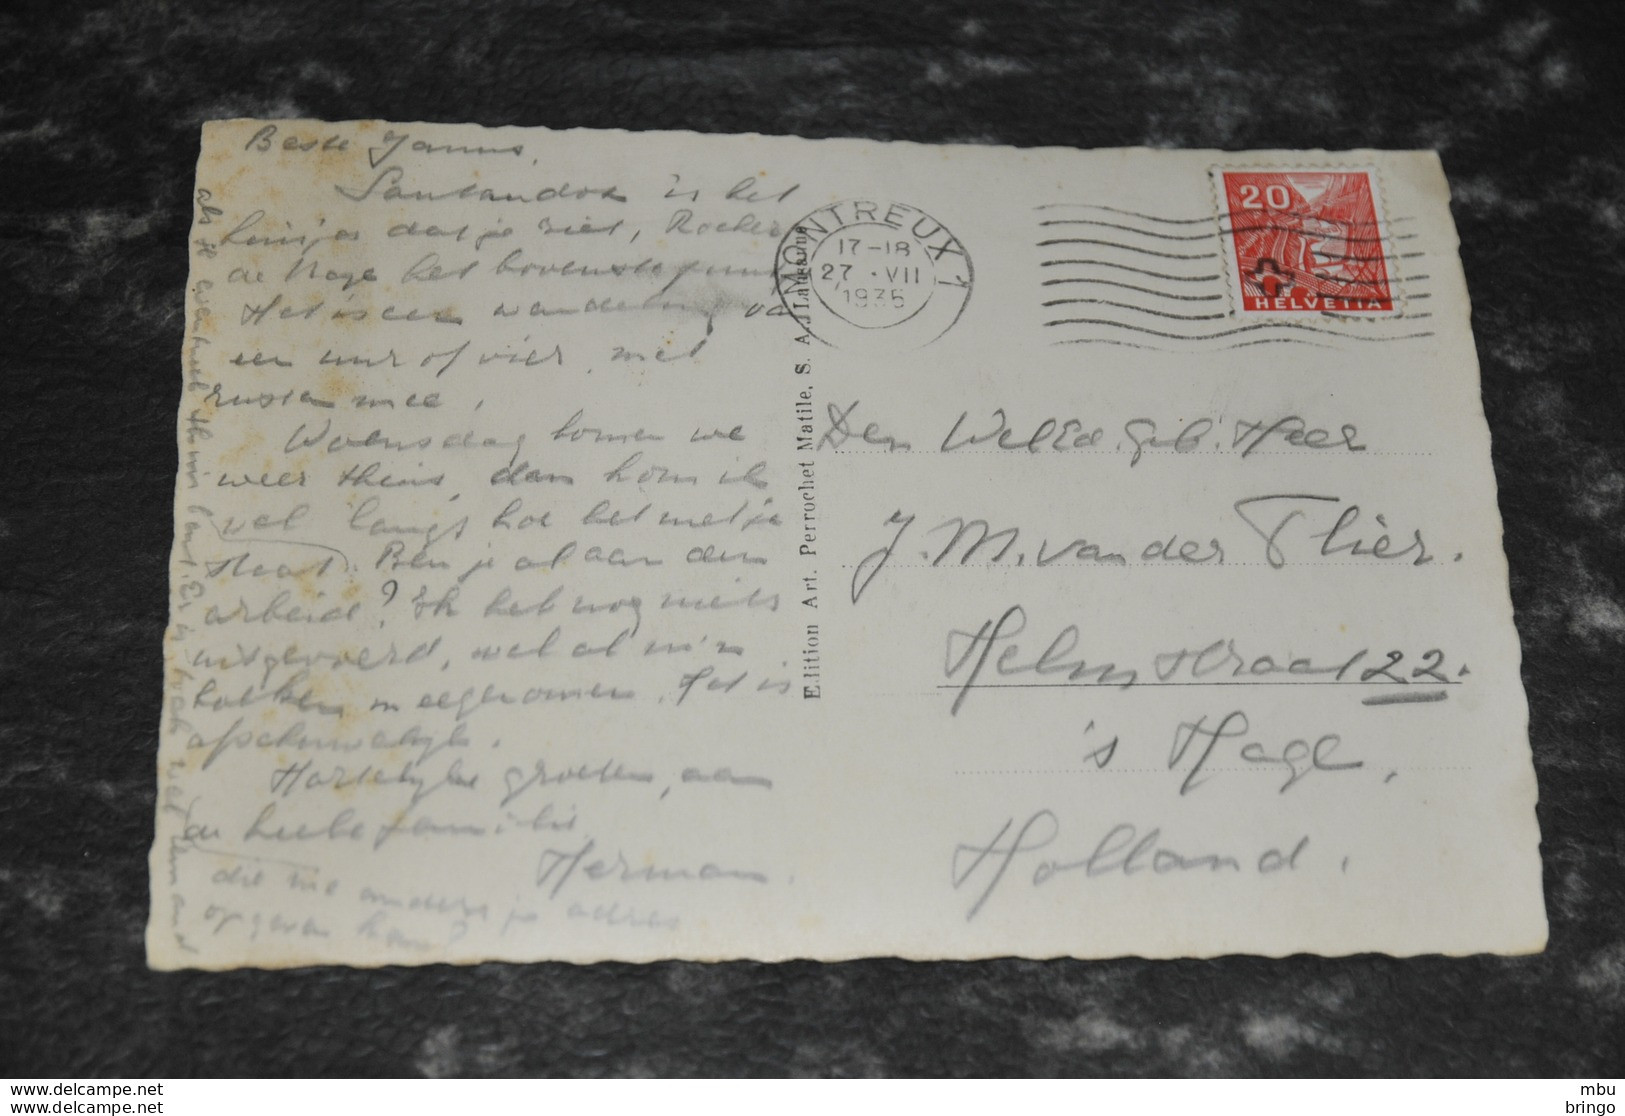 Beste Jannus,
is het
huisje dat je ziet, Rocher
de Naye het bovenste punt
Het is een wandeling van
een uur of vier, met
rusten mee,
Woensdag komen we
weer thuis, dan kom ik
wel langs hoe het met je
staat. Ben je al aan den
arbeid? Ik heb nog niets
uitgevoerd, wel al m'n
boeken meegenomen. Het is
afschuwelijk.
Hartelijke groeten, aan
de heele familie
Herman.
die me anders je adres
opgeven kan?
MONTREUX 1
17-18
27 · VII
1935
20
HELVETIA
Edition Art. Perrochet Matile, S. A., Lausanne
Den WelEd. Geb. Heer
J. M. van der Flier.
Helmstraat 22.
's Hage,
Holland.
www.delcampe.net
www.delcampe.net
mbu
bringo